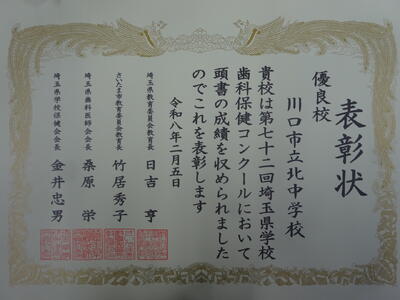 表彰状
優良校
川口市立北中学校
貴校は第七十二回埼玉県学校
歯科保健コンクールにおいて
頭書の成績を収められました
のでこれを表彰します
令和八年二月五日
埼玉県教育委員会教育長 日吉 亨
さいたま市教育委員会教育長 竹居秀子
埼玉県歯科医師会会長 桑原 栄
埼玉県学校保健会会長 金井忠男